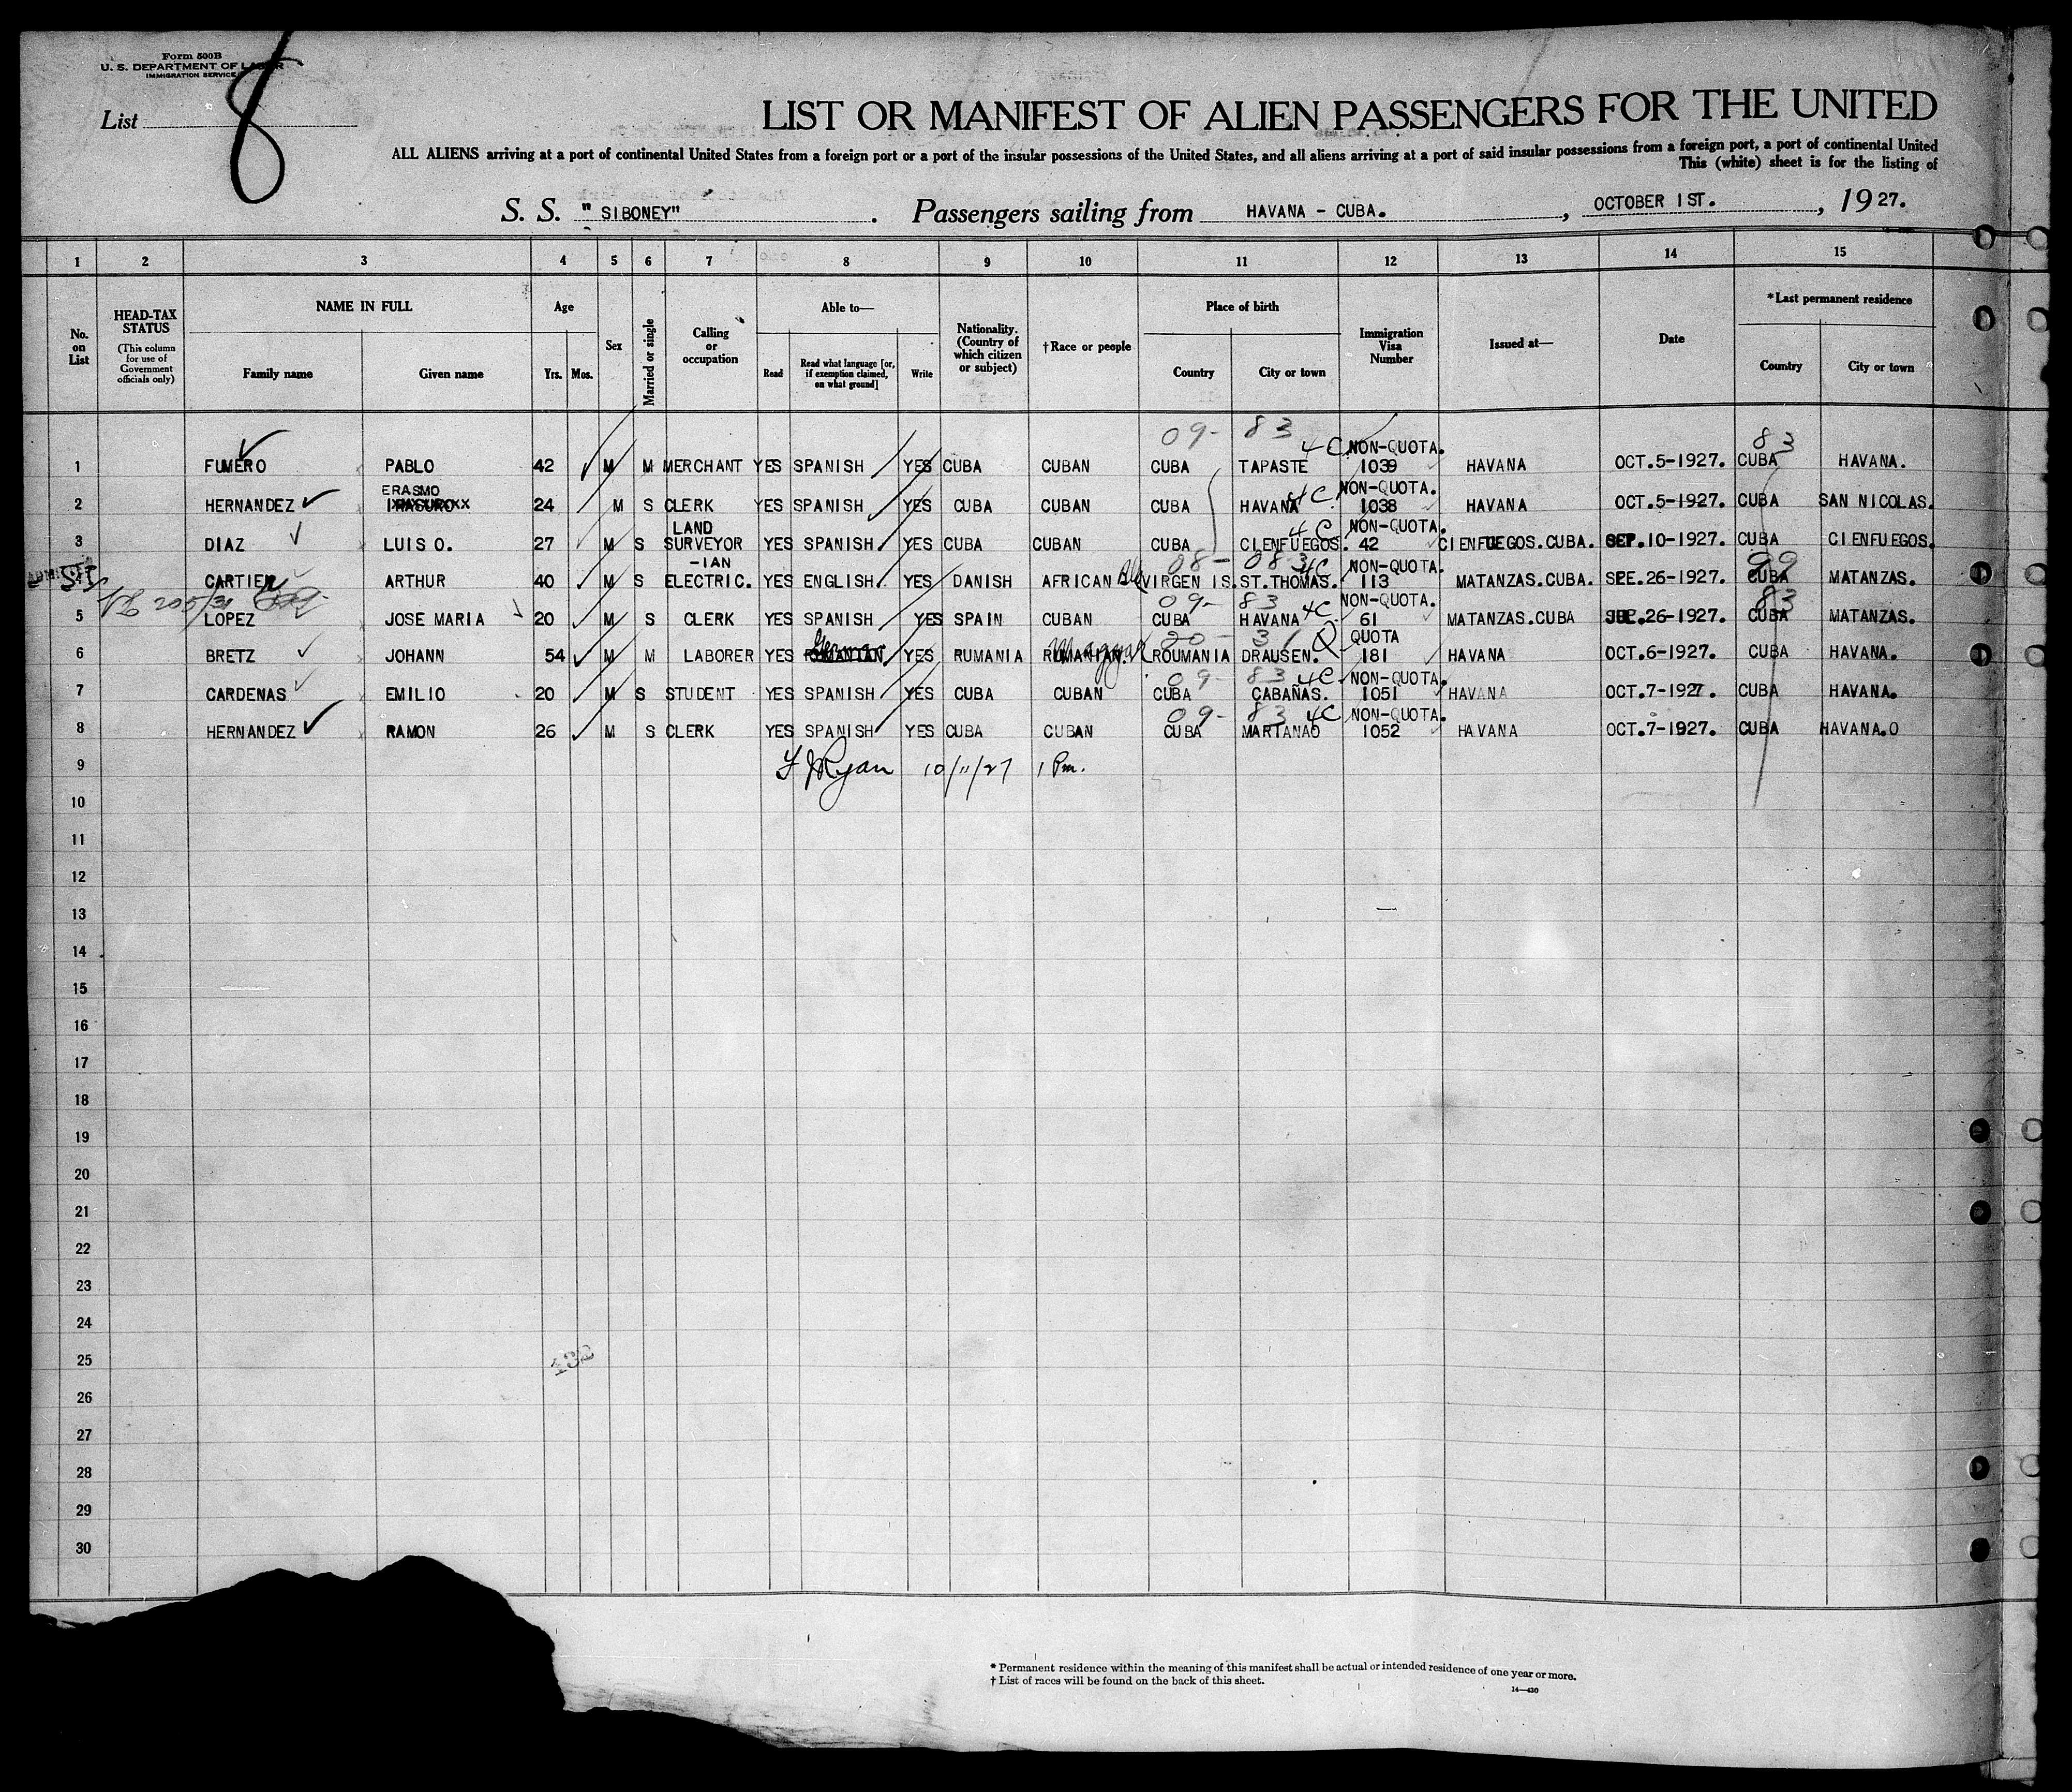 Form 500B
U. S. DEPARTMENT OF LABOR
IMMIGRATION SERVICE
List 8
LIST OR MANIFEST OF ALIEN PASSENGERS FOR THE UNITED
ALL ALIENS arriving at a port of continental United States from a foreign port or a port of the insular possessions of the United States, and all aliens arriving at a port of said insular possessions from a foreign port, a port of continental United
This (white) sheet is for the listing of
S. S. "SIBONEY" . Passengers sailing from HAVANA - CUBA. , OCTOBER 1ST. , 1927.
1 2 3 4 5 6 7 8 9 10 11 12 13 14 15
No. on List HEAD-TAX STATUS (This column for use of Government officials only) NAME IN FULL Family name Given name Age Yrs. Mos. Sex Married or single Calling or occupation Able to— Read Read what language [or, if exemption claimed, on what ground] Write Nationality. (Country of which citizen or subject) †Race or people Place of birth Country City or town Immigration Visa Number Issued at— Date *Last permanent residence Country City or town
09- 83 4C NON-QUOTA. 83
1 FUMERO PABLO 42 M M MERCHANT YES SPANISH YES CUBA CUBAN CUBA TAPASTE 1039 HAVANA OCT.5-1927. CUBA HAVANA.
ERASMO 4C NON-QUOTA.
2 HERNANDEZ 24 M S CLERK YES SPANISH YES CUBA CUBAN CUBA HAVANA 1038 HAVANA OCT.5-1927. CUBA SAN NICOLAS.
LAND 4C NON-QUOTA.
3 DIAZ LUIS O. 27 M S SURVEYOR YES SPANISH. YES CUBA CUBAN CUBA CIENFUEGOS. 42 CIENFUEGOS.CUBA. SEP.10-1927. CUBA CIENFUEGOS.
-IAN 08- 083 4C NON-QUOTA. 99
4 SI CARTIER ARTHUR 40 M S ELECTRIC. YES ENGLISH. YES DANISH AFRICAN VIRGEN IS. ST.THOMAS. 113 MATANZAS.CUBA. SPE.26-1927. CUBA MATANZAS.
09- 83 4C NON-QUOTA. 83
5 LOPEZ JOSE MARIA 20 M S CLERK YES SPANISH YES SPAIN CUBAN CUBA HAVANA 61 MATANZAS.CUBA 26-1927. CUBA MATANZAS.
German Magyar 20- 31 Q QUOTA
6 BRETZ JOHANN 54 M M LABORER YES RUMANIAN. YES RUMANIA RUMANIAN. ROUMANIA DRAUSEN. 181 HAVANA OCT.6-1927. CUBA HAVANA.
09- 83 4C NON-QUOTA.
7 CARDENAS EMILIO 20 M S STUDENT YES SPANISH YES CUBA CUBAN CUBA CABAÑAS. 1051 HAVANA OCT.7-1927. CUBA HAVANA.
09- 83 4C NON-QUOTA.
8 HERNANDEZ RAMON 26 M S CLERK YES SPANISH YES CUBA CUBAN CUBA MARTANAO 1052 HAVANA OCT.7-1927. CUBA HAVANA.O
9 F J Ryan 10/11/27 1 Pm.
10
11
12
13
14
15
16
17
18
19
20
21
22
23
24
25
132
26
27
28
29
30
* Permanent residence within the meaning of this manifest shall be actual or intended residence of one year or more.
† List of races will be found on the back of this sheet.
14—430